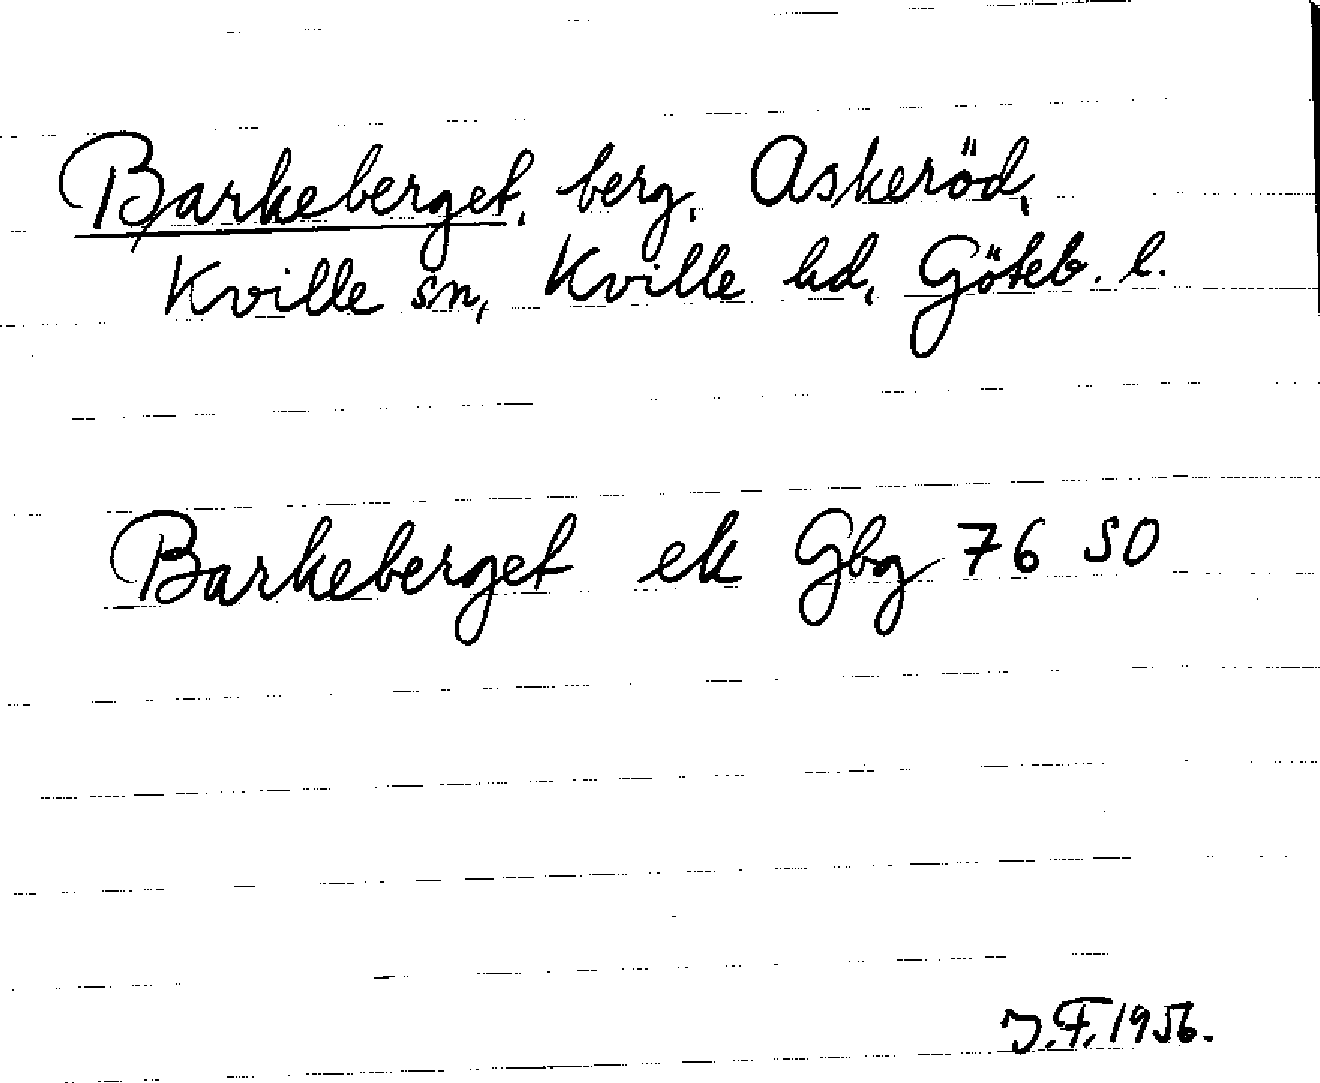 Barkeberget, berg, Askeröd,
Kville sn, Kville hd, Göteb. l.
Barkeberget ek Gbg 76 SO
J.F. 1956.